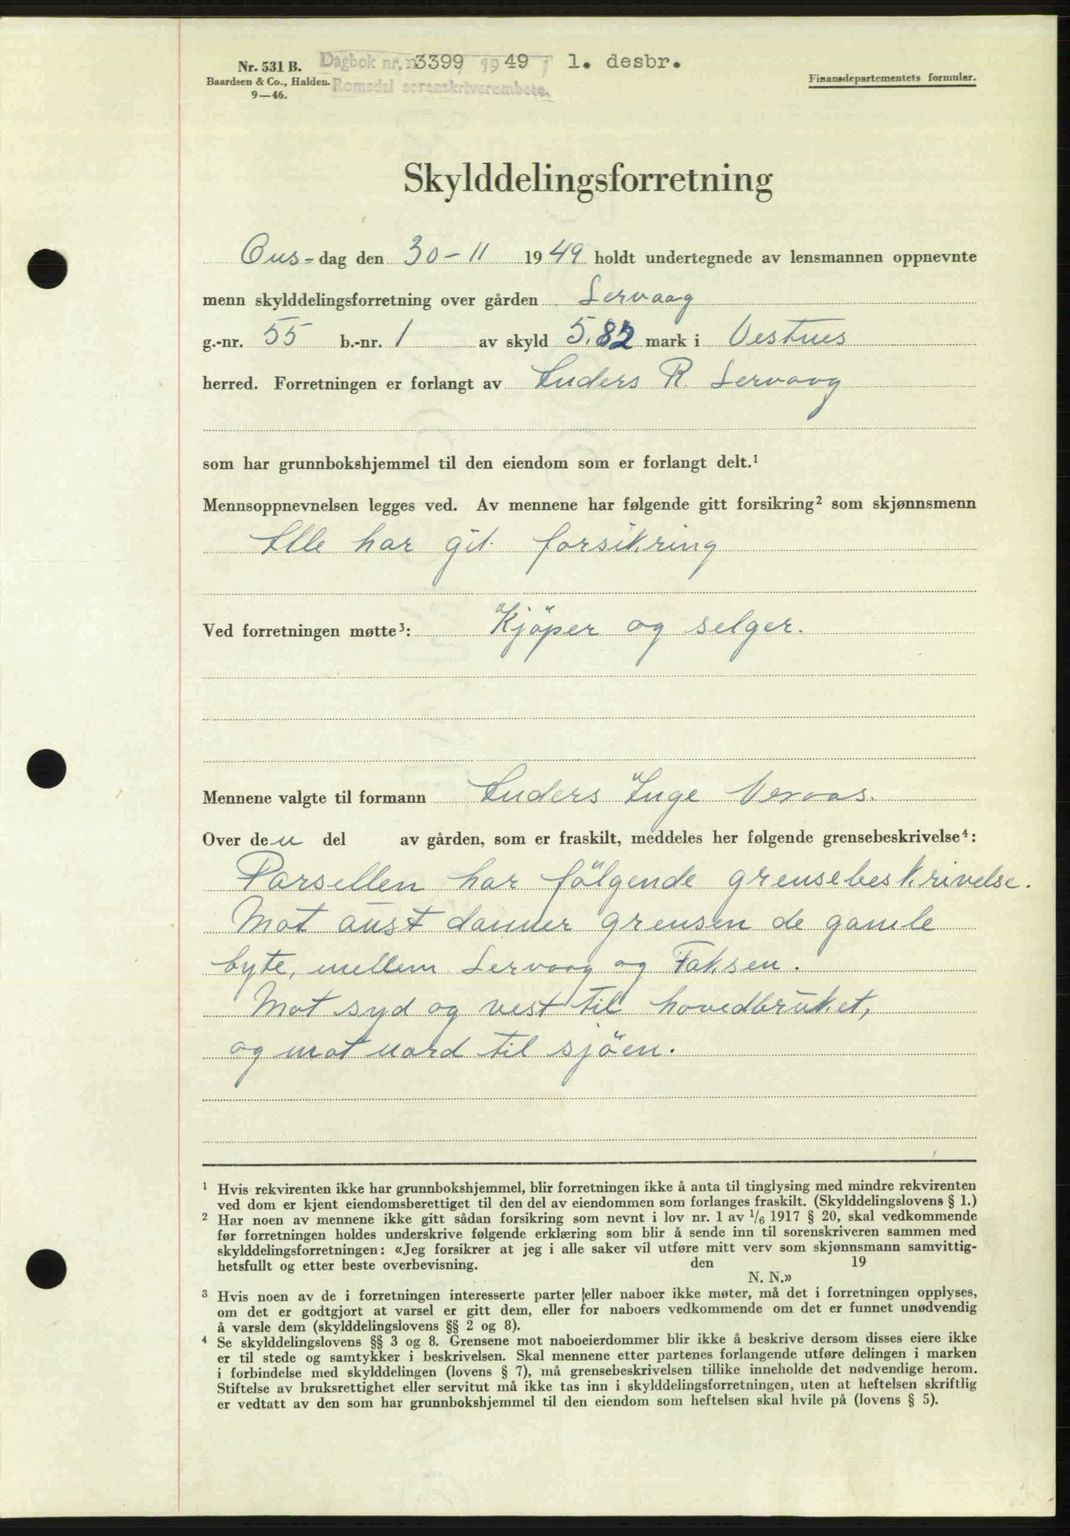 Nr. 531 B.
Baardsen & Co., Halden.
9—46.
Dagbok nr. n3399 1949 1. desbr.
Romsdal sorenskriverembete.
Finansdepartementets formular.
Skylddelingsforretning
Ons-dag den 30-11 1949 holdt undertegnede av lensmannen oppnevnte
menn skylddelingsforretning over gården Lervaag
g.-nr. 55 b.-nr. 1 av skyld 5,82 mark i Vestnes
herred. Forretningen er forlangt av Anders R. Lervaag
som har grunnbokshjemmel til den eiendom som er forlangt delt.¹
Mennsoppnevnelsen legges ved. Av mennene har følgende gitt forsikring² som skjønnsmenn
Alle har git forsikring
Ved forretningen møtte³: Kjöper og selger.
Mennene valgte til formann Anders Inge
Over den del av gården, som er fraskilt, meddeles her følgende grensebeskrivelse⁴:
Parsellen har fölgende grensebeskrivelse.
Mot aust danner grensen de gamle
byte, mellem Lervaag og Faksen.
Mot syd og vest til hovedbruket,
og mot nord til sjöen.
¹ Hvis rekvirenten ikke har grunnbokshjemmel, blir forretningen ikke å anta til tinglysing med mindre rekvirenten
ved dom er kjent eiendomsberettiget til den del av eiendommen som forlanges fraskilt. (Skylddelingslovens § 1.)
² Har noen av mennene ikke gitt sådan forsikring som nevnt i lov nr. 1 av ¹/₆ 1917 § 20, skal vedkommende
før forretningen holdes underskrive følgende erklæring som blir å sende inn til sorenskriveren sammen med
skylddelingsforretningen: «Jeg forsikrer at jeg i alle saker vil utføre mitt verv som skjønnsmann samvittig-
hetsfullt og etter beste overbevisning. den 19
N. N.»
³ Hvis noen av de i forretningen interesserte parter eller naboer ikke møter, må det i forretningen opplyses,
om det er godtgjort at varsel er gitt dem, eller for naboers vedkommende om det er funnet unødvendig
å varsle dem (skylddelingslovens §§ 2 og 8).
⁴ Se skylddelingslovens §§ 3 og 8. Grensene mot naboeierdommer blir ikke å beskrive dersom disses eiere ikke
er til stede og samtykker i beskrivelsen. Skal mennene etter partenes forlangende utføre delingen i marken
i forbindelse med skylddelingen (lovens § 7), må grensebeskrivelsen tillike inneholde det nødvendige herom.
Stiftelse av bruksrettighet eller servitut må ikke tas inn i skylddelingsforretningen, uten at heftelsen skriftlig
er vedtatt av den som har grunnbokshjemmel til den eiendom som heftelsen skal hvile på (lovens § 5).